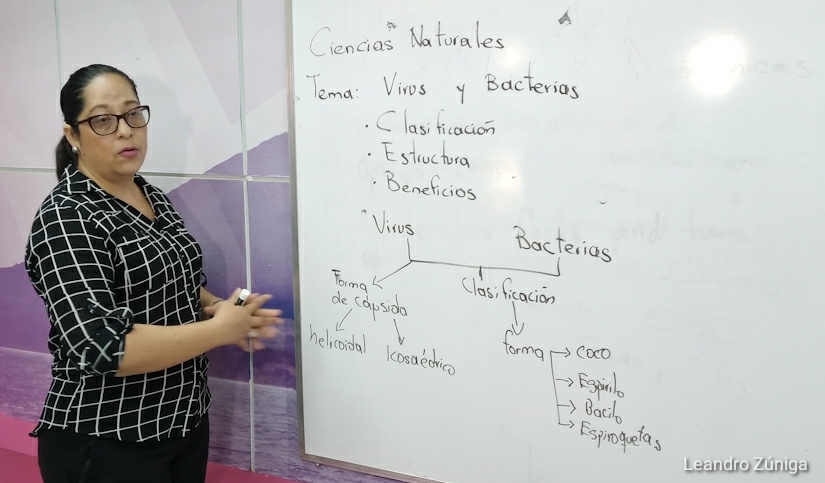 Ciencias Naturales
Tema: Virus y Bacterias
· Clasificación
· Estructura
· Beneficios
Virus
Bacterias
Forma
de cápsida
Clasificación
helicoidal
Icosaédrico
forma
coco
Espirilo
Bacilo
Espiroquetas
Leandro Zúniga